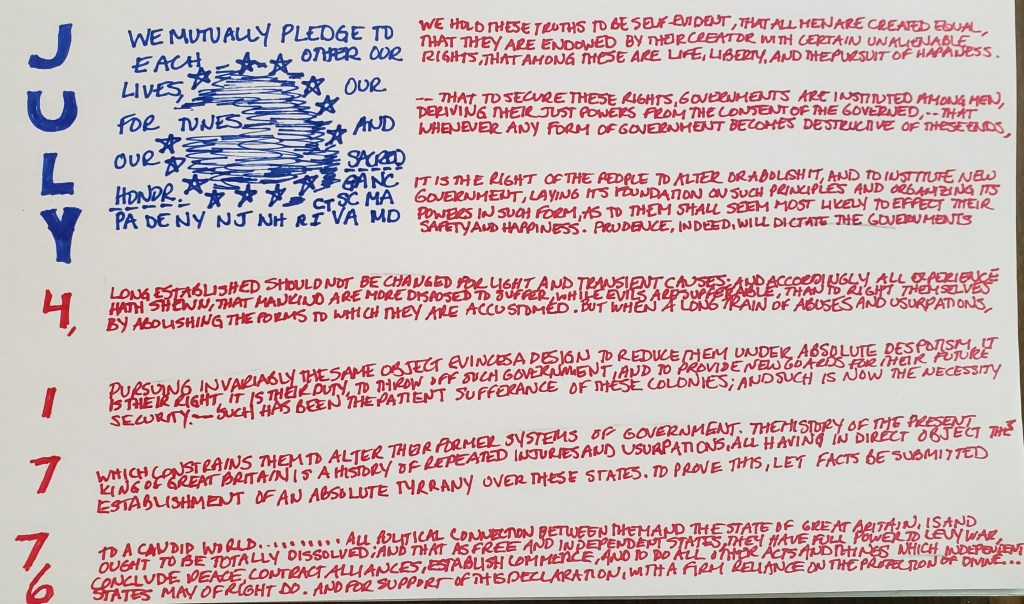 JULY
4,
1
7
7
6
WE MUTUALLY PLEDGE TO
EACH OTHER OUR
LIVES, OUR
FOR TUNES AND
OUR SACRED
HONOR. GA NC
CT SC MA
PA DE NY NJ NH RI VA MD
WE HOLD THESE TRUTHS TO BE SELF-EVIDENT, THAT ALL MEN ARE CREATED EQUAL,
THAT THEY ARE ENDOWED BY THEIR CREATOR WITH CERTAIN UNALIENABLE
RIGHTS, THAT AMONG THESE ARE LIFE, LIBERTY, AND THE PURSUIT OF HAPPINESS.
-- THAT TO SECURE THESE RIGHTS, GOVERNMENTS ARE INSTITUTED AMONG MEN,
DERIVING THEIR JUST POWERS FROM THE CONSENT OF THE GOVERNED, -- THAT
WHENEVER ANY FORM OF GOVERNMENT BECOMES DESTRUCTIVE OF THESE ENDS,
IT IS THE RIGHT OF THE PEOPLE TO ALTER OR ABOLISH IT, AND TO INSTITUTE NEW
GOVERNMENT, LAYING ITS FOUNDATION ON SUCH PRINCIPLES AND ORGANIZING ITS
POWERS IN SUCH FORM, AS TO THEM SHALL SEEM MOST LIKELY TO EFFECT THEIR
SAFETY AND HAPPINESS. PRUDENCE, INDEED, WILL DICTATE THE GOVERNMENTS
LONG ESTABLISHED SHOULD NOT BE CHANGED FOR LIGHT AND TRANSIENT CAUSES; AND ACCORDINGLY ALL EXPERIENCE
HATH SHEWN, THAT MANKIND ARE MORE DISPOSED TO SUFFER, WHILE EVILS ARE SUFFERABLE, THAN TO RIGHT THEMSELVES
BY ABOLISHING THE FORMS TO WHICH THEY ARE ACCUSTOMED. BUT WHEN A LONG TRAIN OF ABUSES AND USURPATIONS,
PURSUING INVARIABLY THE SAME OBJECT EVINCES A DESIGN TO REDUCE THEM UNDER ABSOLUTE DESPOTISM, IT
IS THEIR RIGHT, IT IS THEIR DUTY, TO THROW OFF SUCH GOVERNMENT, AND TO PROVIDE NEW GUARDS FOR THEIR FUTURE
SECURITY. -- SUCH HAS BEEN THE PATIENT SUFFERANCE OF THESE COLONIES; AND SUCH IS NOW THE NECESSITY
WHICH CONSTRAINS THEM TO ALTER THEIR FORMER SYSTEMS OF GOVERNMENT. THE HISTORY OF THE PRESENT
KING OF GREAT BRITAIN IS A HISTORY OF REPEATED INJURIES AND USURPATIONS, ALL HAVING IN DIRECT OBJECT THE
ESTABLISHMENT OF AN ABSOLUTE TYRRANY OVER THESE STATES. TO PROVE THIS, LET FACTS BE SUBMITTED
TO A CANDID WORLD.......... ALL POLITICAL CONNECTION BETWEEN THEM AND THE STATE OF GREAT BRITAIN, IS AND
OUGHT TO BE TOTALLY DISSOLVED; AND THAT AS FREE AND INDEPENDENT STATES, THEY HAVE FULL POWER TO LEVY WAR,
CONCLUDE PEACE, CONTRACT ALLIANCES, ESTABLISH COMMERCE, AND TO DO ALL OTHER ACTS AND THINGS WHICH INDEPENDENT
STATES MAY OF RIGHT DO. AND FOR SUPPORT OF THIS DECLARATION, WITH A FIRM RELIANCE ON THE PROTECTION OF DIVINE...